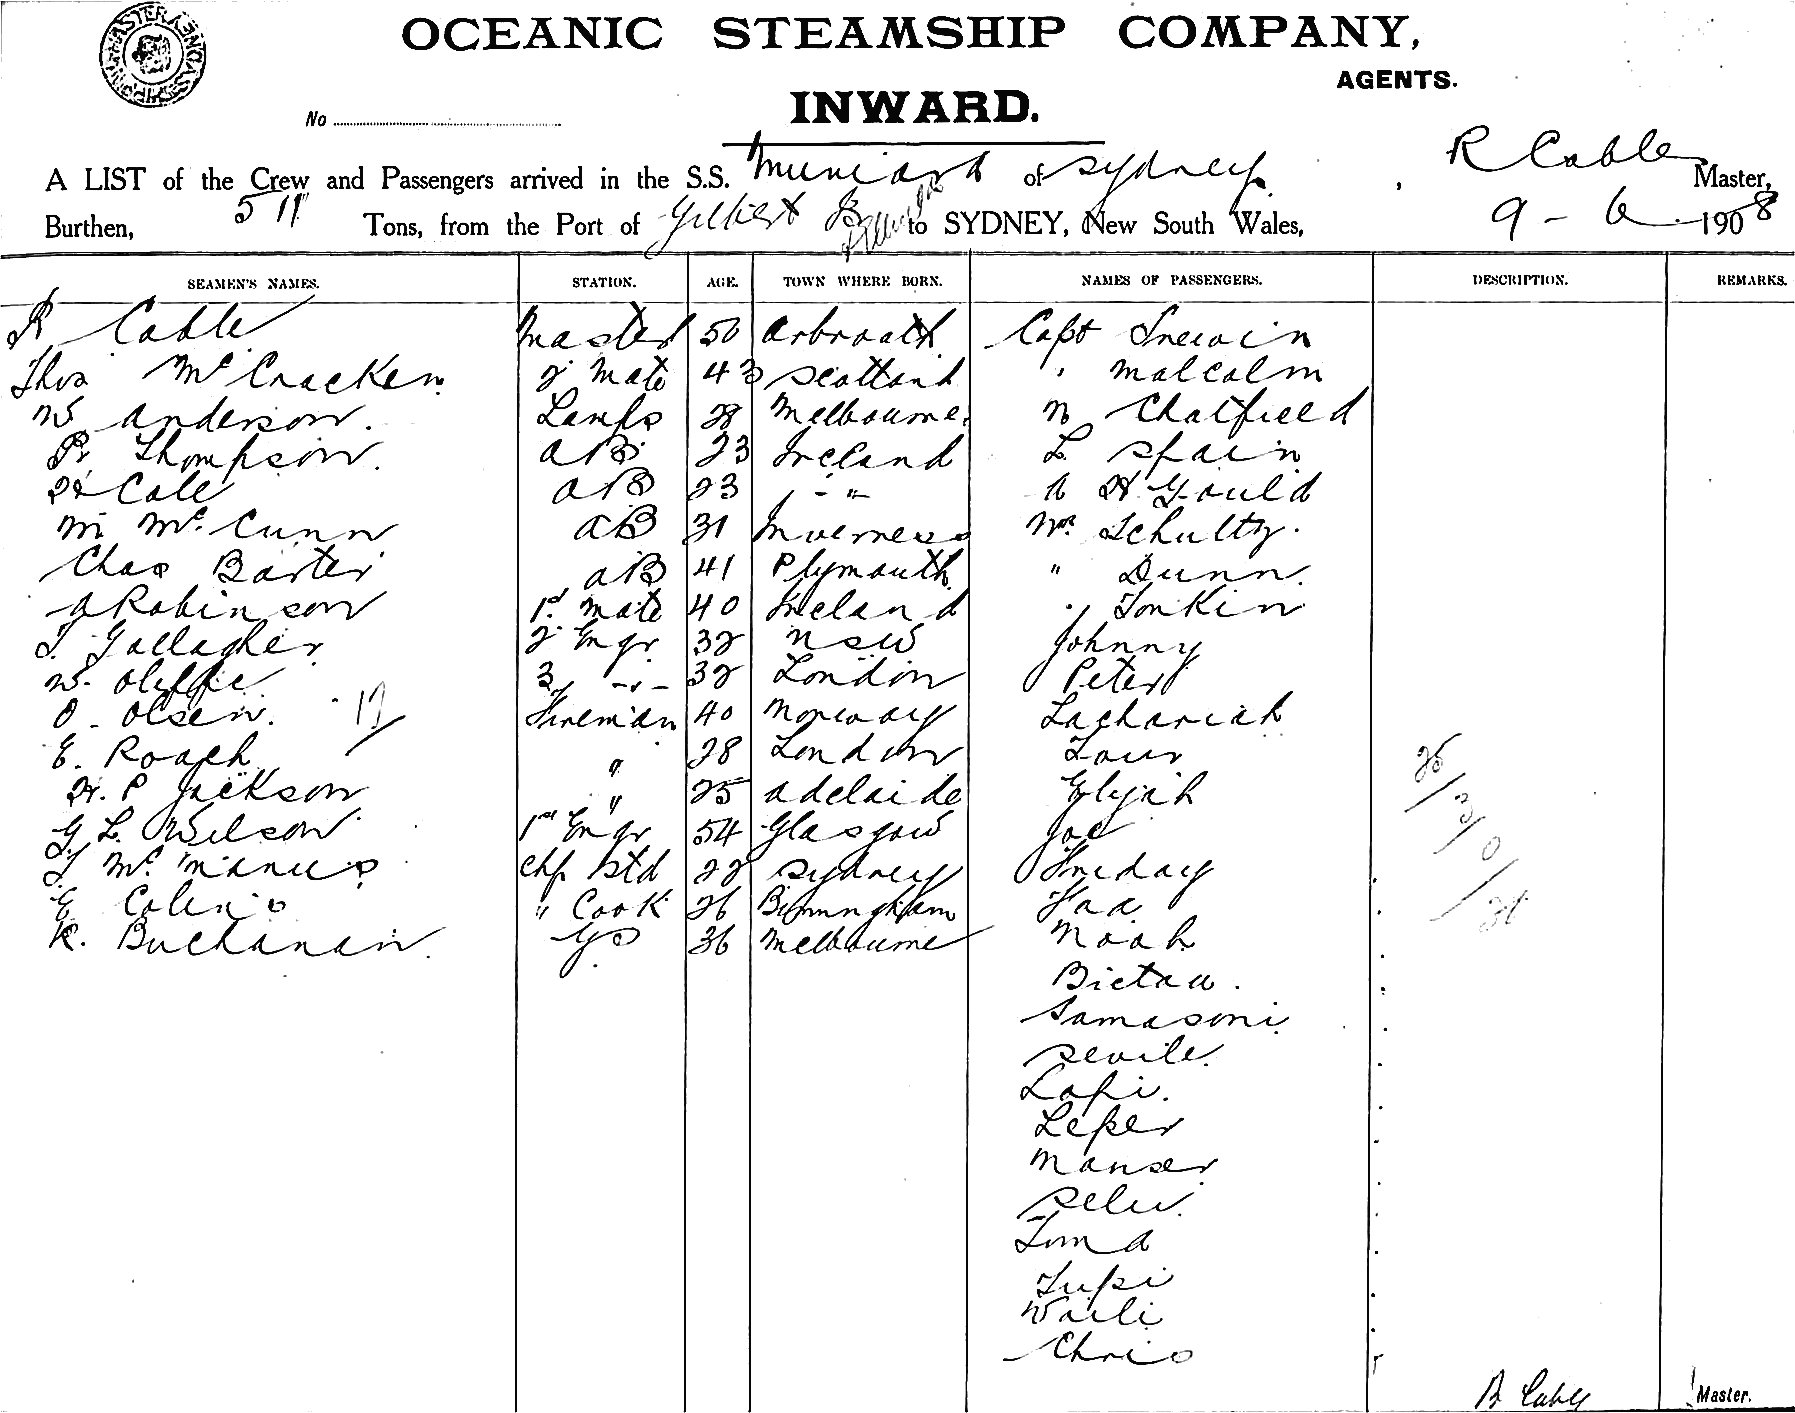 SHIPPING MASTER SYDNEY
OCEANIC STEAMSHIP COMPANY,
AGENTS.
No
INWARD.
A LIST of the Crew and Passengers arrived in the S.S. Muniara of Sydney, R Cable Master,
Burthen, 511 Tons, from the Port of Gilbert to SYDNEY, New South Wales, 9 - 6 1908
SEAMEN'S NAMES. STATION. AGE. TOWN WHERE BORN. NAMES OF PASSENGERS. DESCRIPTION. REMARKS.
R Cable Master 50 Arbroath Capt
Thos McCracken 2 Mate 43 Scotland " Malcolm
W Anderson. Lamps 28 Melbourne. W Chatfield
P Thompson. AB 23 Ireland L Spain
H Cole AB 23 - " - A H Gould
M McCunn AB 31 Inverness Mr. Schultz.
Chas Barter AB 41 Plymouth " Dunn.
A Robinson 1st Mate 40 Ireland " Tonkin
T. Gallagher 2 Engr. 32 NSW Johnny
W. Oliffe 3 - " - 32 London Peter
O. Olsen. 17 Fireman 40 Norway Zachariah
E. Roach " 28 London
H. P Jackson " 25 Adelaide Elijah
G L Wilson 1st Engr 54 Glasgow Joe
T McManus Chf Std 22 Sydney Friday
E Colen " Cook 26 Birmingham
K. Buchanan. 36 Melbourne Noah
Bietau.
Samasoni
Sevile.
Lapi.
Leper
Manser
Selu.
Toma
Tupi
Waili
Chris
R Cable Master.